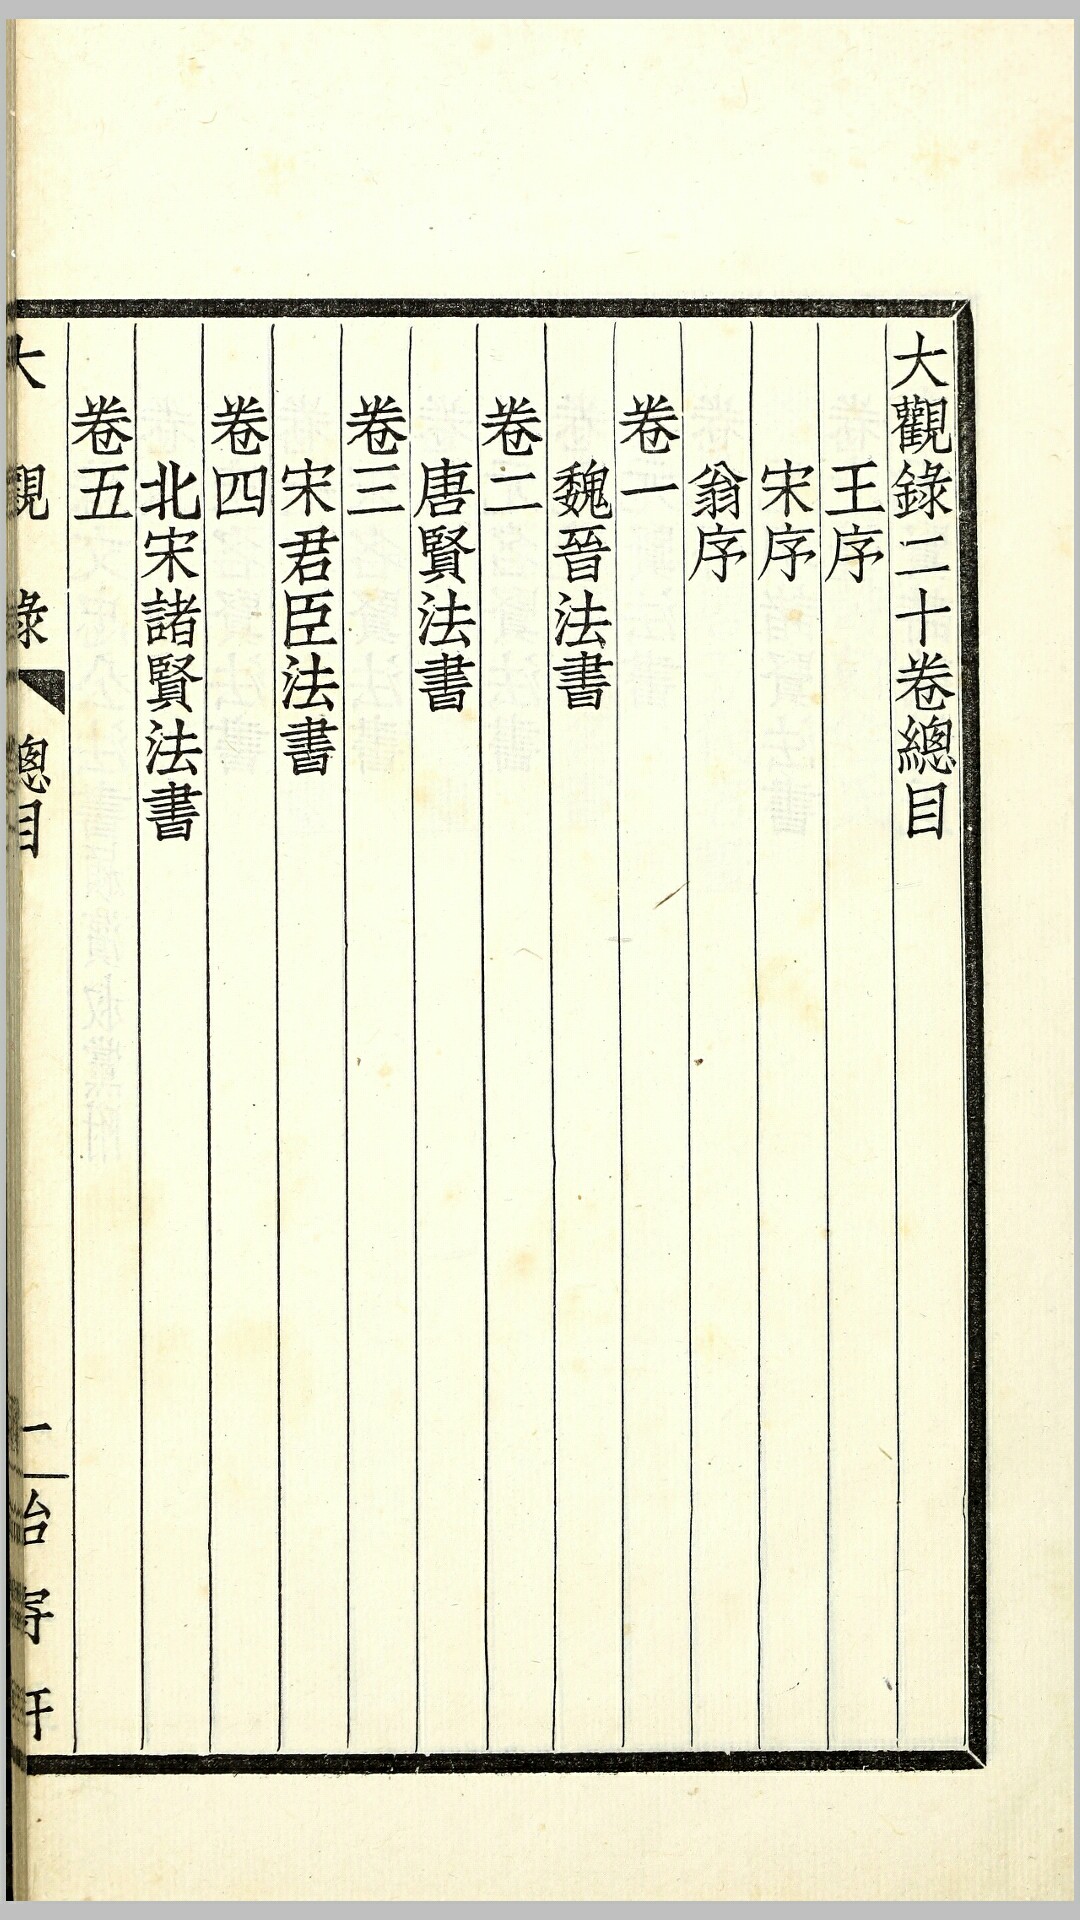 大觀錄二十卷總目
王序
宋序
翁序
卷一
魏晉法書
卷二
唐賢法書
卷三
宋君臣法書
卷四
北宋諸賢法書
卷五
大觀錄 總目 一